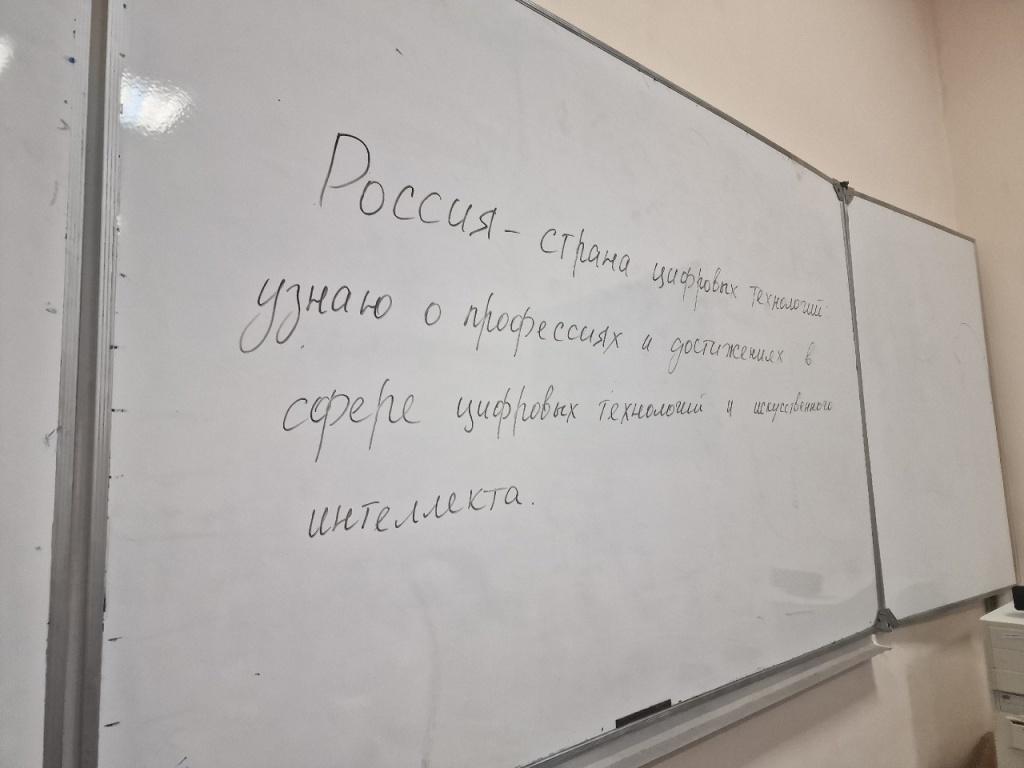 Россия – страна цифровых технологий:
узнаю о профессиях и достижениях в
сфере цифровых технологий и искусственного
интеллекта.